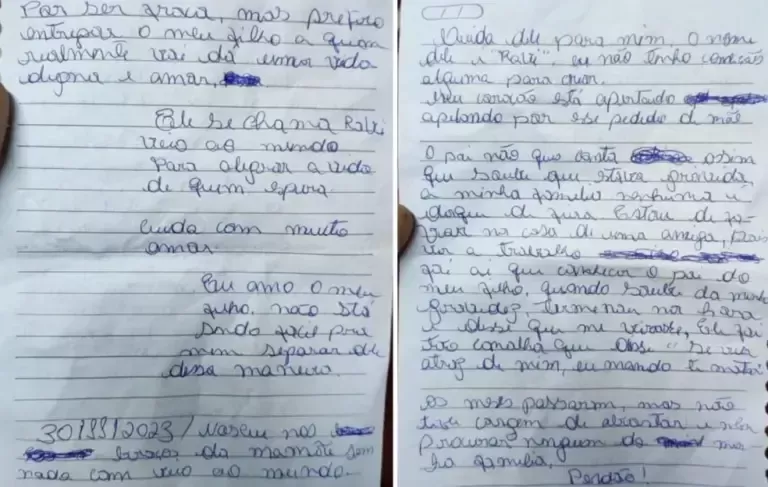 Por ser fraca, mas prefiro
entregar o meu filho a quem
realmente vai dá uma vida
digna e amor,
Ele se chama Ravi
veio ao mundo
Para alegrar a vida
de quem espera
Cuida com muito
amor.
Eu amo o meu
filho, não stá
sndo facil pra
mim separar dle
dessa maneira.
30/11/2023/ Nasceu nos
braços da mamãe sem
nada com veio ao mundo.
Cuida dele para mim, o nome
dele é "Ravi", eu não tenho condição
alguma para criar.
Meu coração está apertado
apelando por esse pedido de mãe
O pai não quis conta assim
que soube que estava gravida,
a minha familia nenhuma é
daqui de fora Estou de fa-
vor na casa de uma amiga, pois
vir a trabalho
foi ai que conheci o pai do
meu filho, quando soube da minha
gravidez, terminou na hora
e disse que me virasse, Ele foi
tão canalha que disse "Se vir
atraz de mim, eu mando te matá
os mess passarm, mas não
tive corgem de abortar e nem
Procurar ninguem da mi
ha familia,
Perdão!